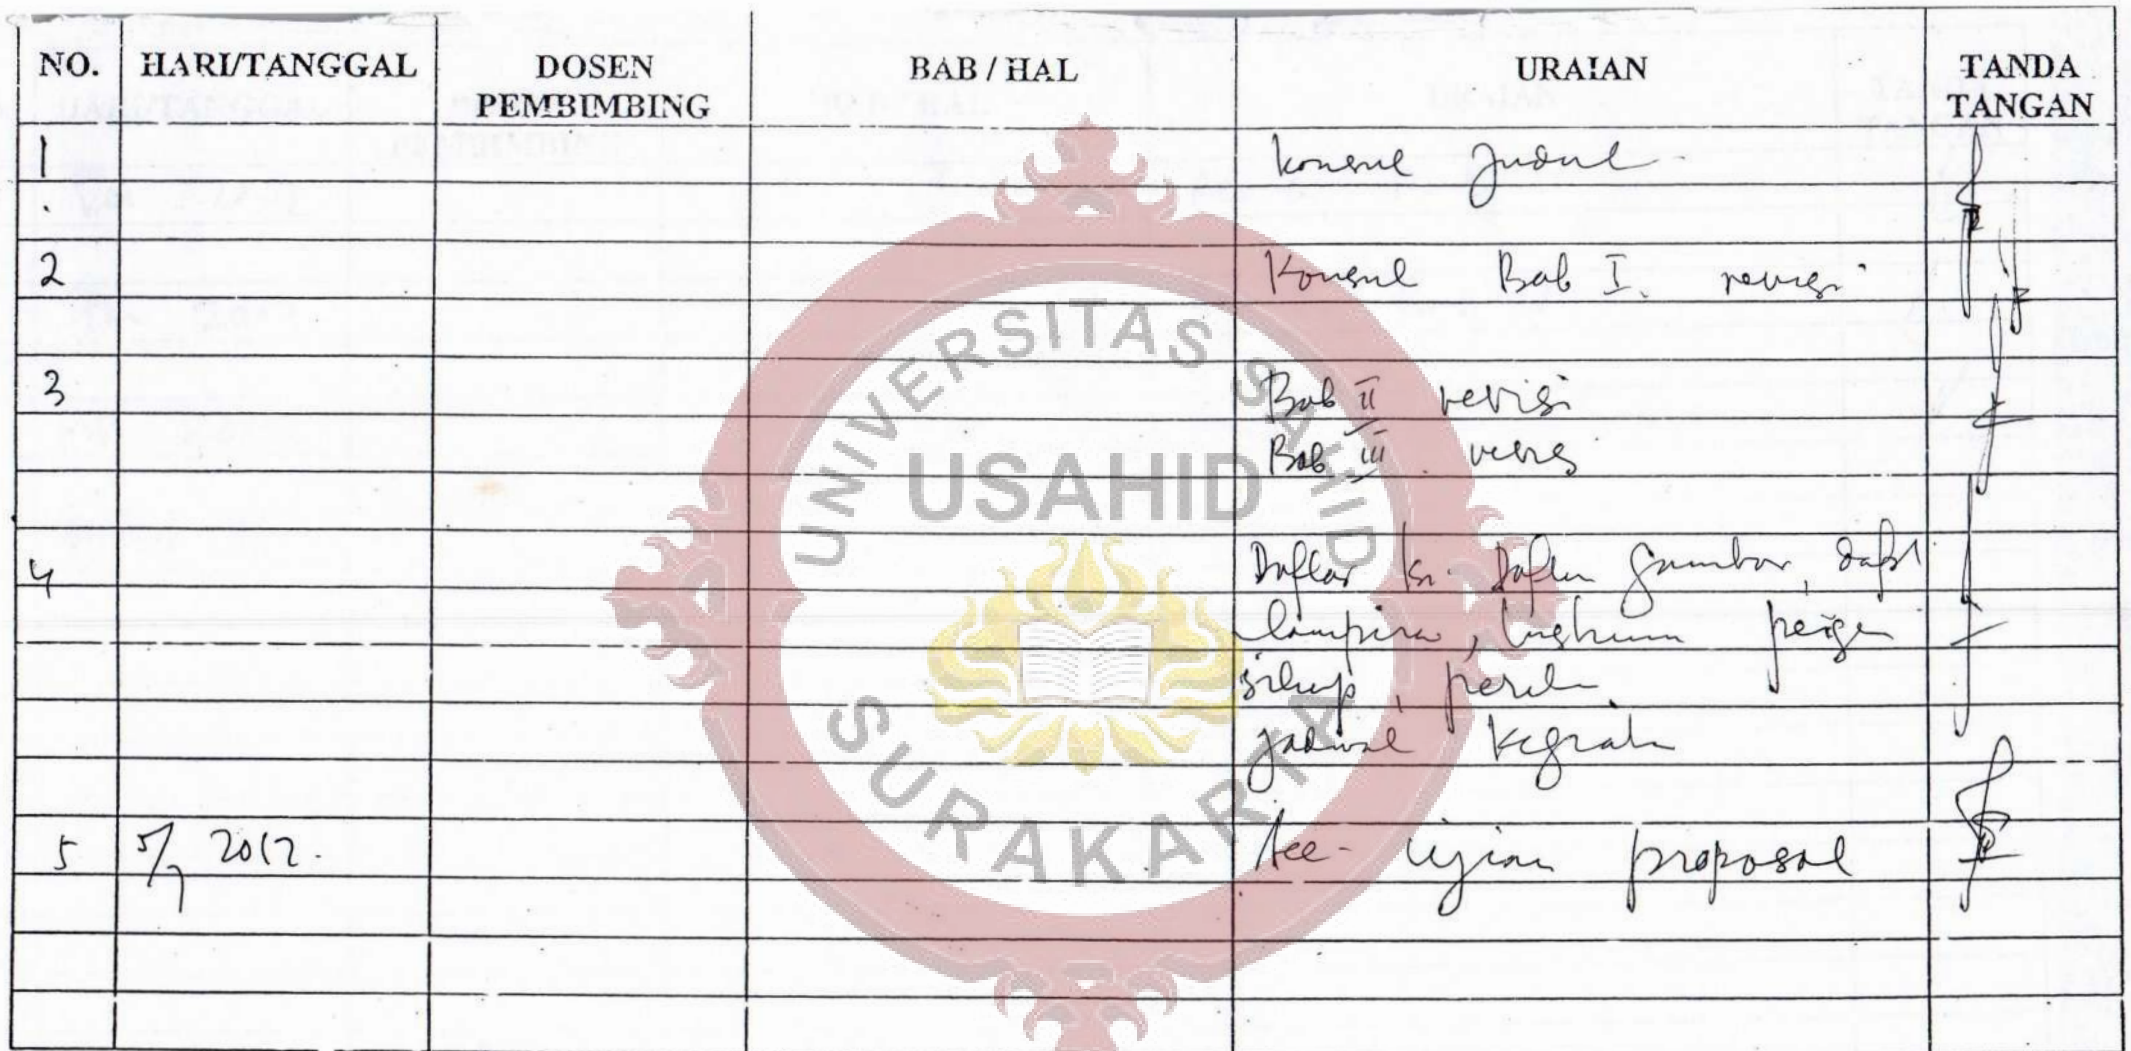 NO. HARI/TANGGAL DOSEN PEMBIMBING BAB / HAL URAIAN TANDA TANGAN
1 Konsul Judul
2 Konsul Bab I. revisi
3 Bab II revisi
Bab III. revisi
4 Daftar Isi Daftar Gambar, daft
lampiran,
sikap,
jadwal kegiatan
5 5/7 2012. Acc- Ujian proposal
UNIVERSITAS SAHID
USAHID
SURAKARTA